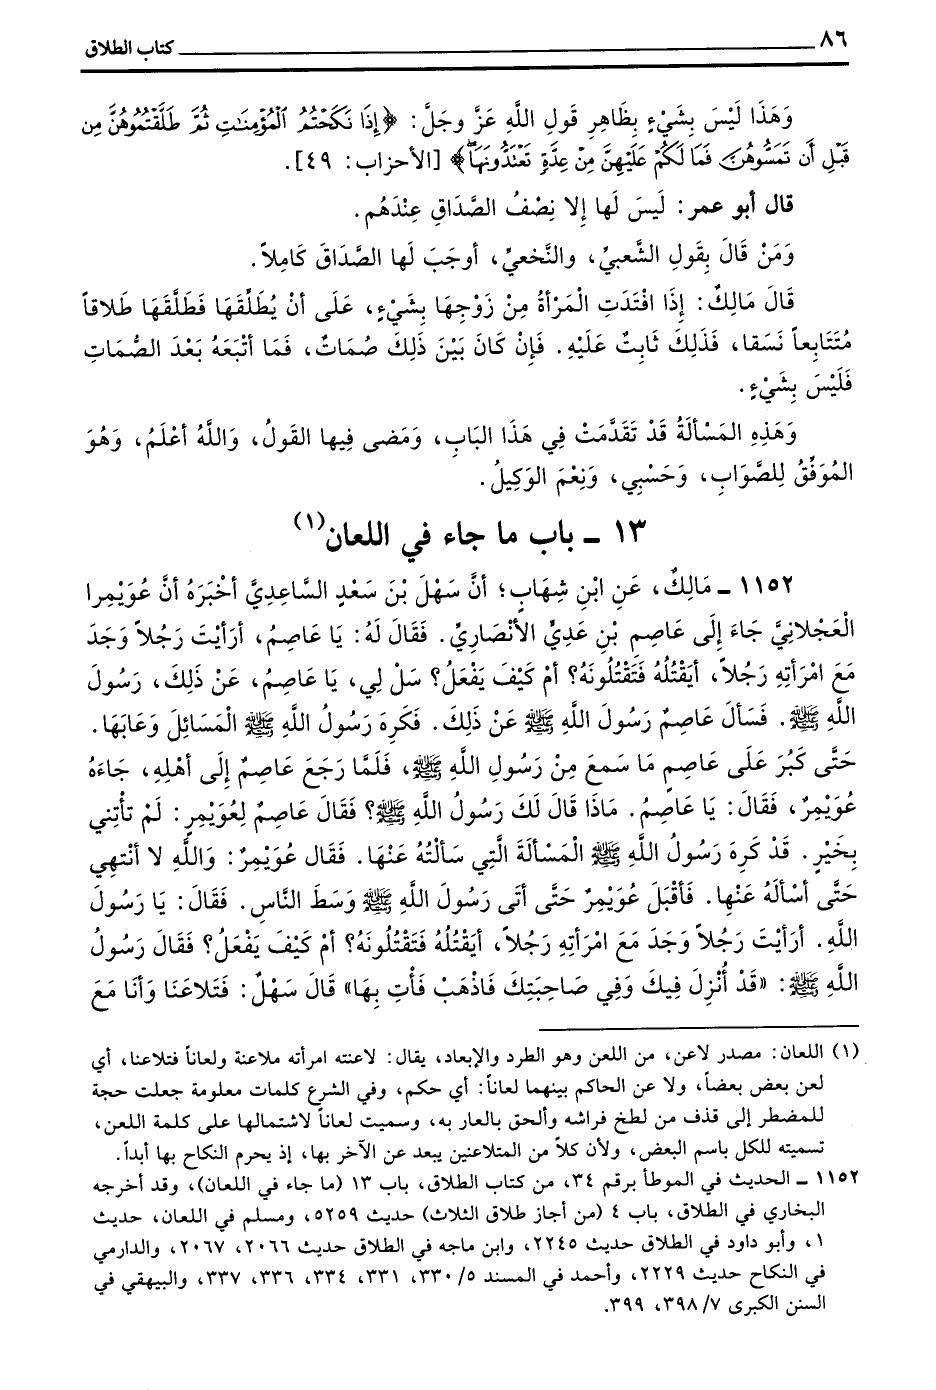 ٨٦ كتاب الطلاق
وَهَذَا لَيْسَ بِشَيْءٍ بِظَاهِرِ قَولِ اللَّهِ عَزَّ وجَلَّ: ﴿إِذَا نَكَحْتُمُ الْمُؤْمِنَاتِ ثُمَّ طَلَّقْتُمُوهُنَّ مِن
قَبْلِ أَن تَمَسُّوهُنَّ فَمَا لَكُمْ عَلَيْهِنَّ مِنْ عِدَّةٍ تَعْتَدُّونَهَا﴾ [الأحزاب: ٤٩].
قال أبو عمر: لَيسَ لَها إِلا نِصْفُ الصَّدَاقِ عِنْدَهُم.
وَمَنْ قَالَ بِقَولِ الشَّعبيِّ، والنَّخعيِّ، أوجَبَ لَها الصَّدَاقَ كَامِلاً.
قَالَ مَالِكٌ: إِذَا افْتَدَتِ الْمَرْأةُ مِنْ زَوْجِهَا بِشَيْءٍ، عَلَى أنْ يُطَلِّقَهَا فَطَلَّقَهَا طَلاقاً
مُتَتَابِعاً نَسَقا، فَذَلِكَ ثَابِتٌ عَلَيْهِ. فَإِنْ كَانَ بَيْنَ ذَلِكَ صُمَاتٌ، فَمَا أتْبَعَهُ بَعْدَ الصُّمَاتِ
فَلَيْسَ بِشَيْءٍ.
وَهَذِهِ المَسْألَةُ قَدْ تَقَدَّمَتْ فِي هَذَا البَابِ، وَمَضى فِيها القَولُ، وَاللَّهُ أعْلَمُ، وَهُوَ
المُوَفِّقُ لِلصَّوَابِ، وَحَسْبِي، وَنِعْمَ الوَكِيلُ.
١٣ ـ باب ما جاء في اللعان(١)
١١٥٢ ـ مَالِكٌ، عَنِ ابْنِ شِهَابٍ؛ أنَّ سَهْلَ بْنَ سَعْدٍ السَّاعِدِيَّ أخْبَرَهُ أنَّ عُوَيْمِرا
الْعَجْلانِيَّ جَاءَ إِلَى عَاصِمِ بْنِ عَدِيٍّ الأنْصَارِيِّ. فَقَالَ لَهُ: يَا عَاصِمُ، أرَأيْتَ رَجُلاً وَجَدَ
مَعَ امْرَأتِهِ رَجُلاً، أيَقْتُلُهُ فَتَقْتُلُونَهُ؟ أمْ كَيْفَ يَفْعَلُ؟ سَلْ لِي، يَا عَاصِمُ، عَنْ ذَلِكَ، رَسُولَ
اللَّهِ ﷺ. فَسَألَ عَاصِمٌ رَسُولَ اللَّهِ ﷺ عَنْ ذَلِكَ. فَكَرِهَ رَسُولُ اللَّهِ ﷺ الْمَسَائِلَ وَعَابَهَا.
حَتَّى كَبُرَ عَلَى عَاصِمٍ مَا سَمعَ مِنْ رَسُولِ اللَّهِ ﷺ، فَلَمَّا رَجَعَ عَاصِمٌ إِلَى أهْلِهِ، جَاءَهُ
عُوَيْمِرٌ، فَقَالَ: يَا عَاصِمُ. مَاذَا قَالَ لَكَ رَسُولُ اللَّهِ ﷺ؟ فَقَالَ عَاصِمٌ لِعُوَيْمِرٍ: لَمْ تأْتِنِي
بِخَيْرٍ. قَدْ كَرِهَ رَسُولُ اللَّهِ ﷺ الْمَسْألَةَ الَّتِي سَألْتُهُ عَنْهَا. فَقَال عُوَيْمِرٌ: وَاللَّهِ لا أنْتَهِي
حَتَّى أسْألَهُ عَنْهِا. فَأقْبَلَ عُوَيْمِرٌ حَتَّى أتَى رَسُولَ اللَّهِ ﷺ وَسَطَ النَّاسِ. فَقَالَ: يَا رَسُولَ
اللَّهِ. أرَأيْتَ رَجُلاً وَجَدَ مَعَ امْرَأتِهِ رَجُلاً، أيَقْتُلُهُ فَتَقْتُلُونَهُ؟ أمْ كَيْفَ يَفْعَلُ؟ فَقَالَ رَسُولُ
اللَّهِ ﷺ: «قَدْ أُنْزِلَ فِيكَ وَفِي صَاحِبَتِكَ فَاذْهَبْ فَأْتِ بِهَا» قَالَ سَهْلٌ: فَتَلاعَنَا وَأنَا مَعَ
(١) اللعان: مصدر لاعن، من اللعن وهو الطرد والإبعاد، يقال: لاعنته امرأته ملاعنة ولعاناً فتلاعنا، أي
لعن بعض بعضاً، ولا عن الحاكم بينهما لعاناً: أي حكم، وفي الشرع كلمات معلومة جعلت حجة
للمضطر إلى قذف من لطخ فراشه وألحق بالعار به، وسميت لعاناً لاشتمالها على كلمة اللعن،
تسميته للكل باسم البعض، ولأن كلاً من المتلاعنين يبعد عن الآخر بها، إذ يحرم النكاح بها أبداً.
١١٥٢ ـ الحديث في الموطأ برقم ٣٤، من كتاب الطلاق، باب ١٣ (ما جاء في اللعان)، وقد أخرجه
البخاري في الطلاق، باب ٤ (من أجاز طلاق الثلاث) حديث ٥٢٥٩، ومسلم في اللعان، حديث
١، وأبو داود في الطلاق حديث ٢٢٤٥، وابن ماجه في الطلاق حديث ٢٠٦٦، ٢٠٦٧، والدارمي
في النكاح حديث ٢٢٢٩، وأحمد في المسند ٥/ ٣٣٠، ٣٣١، ٣٣٤، ٣٣٦، ٣٣٧، والبيهقي في
السنن الكبرى ٧/ ٣٩٨، ٣٩٩.